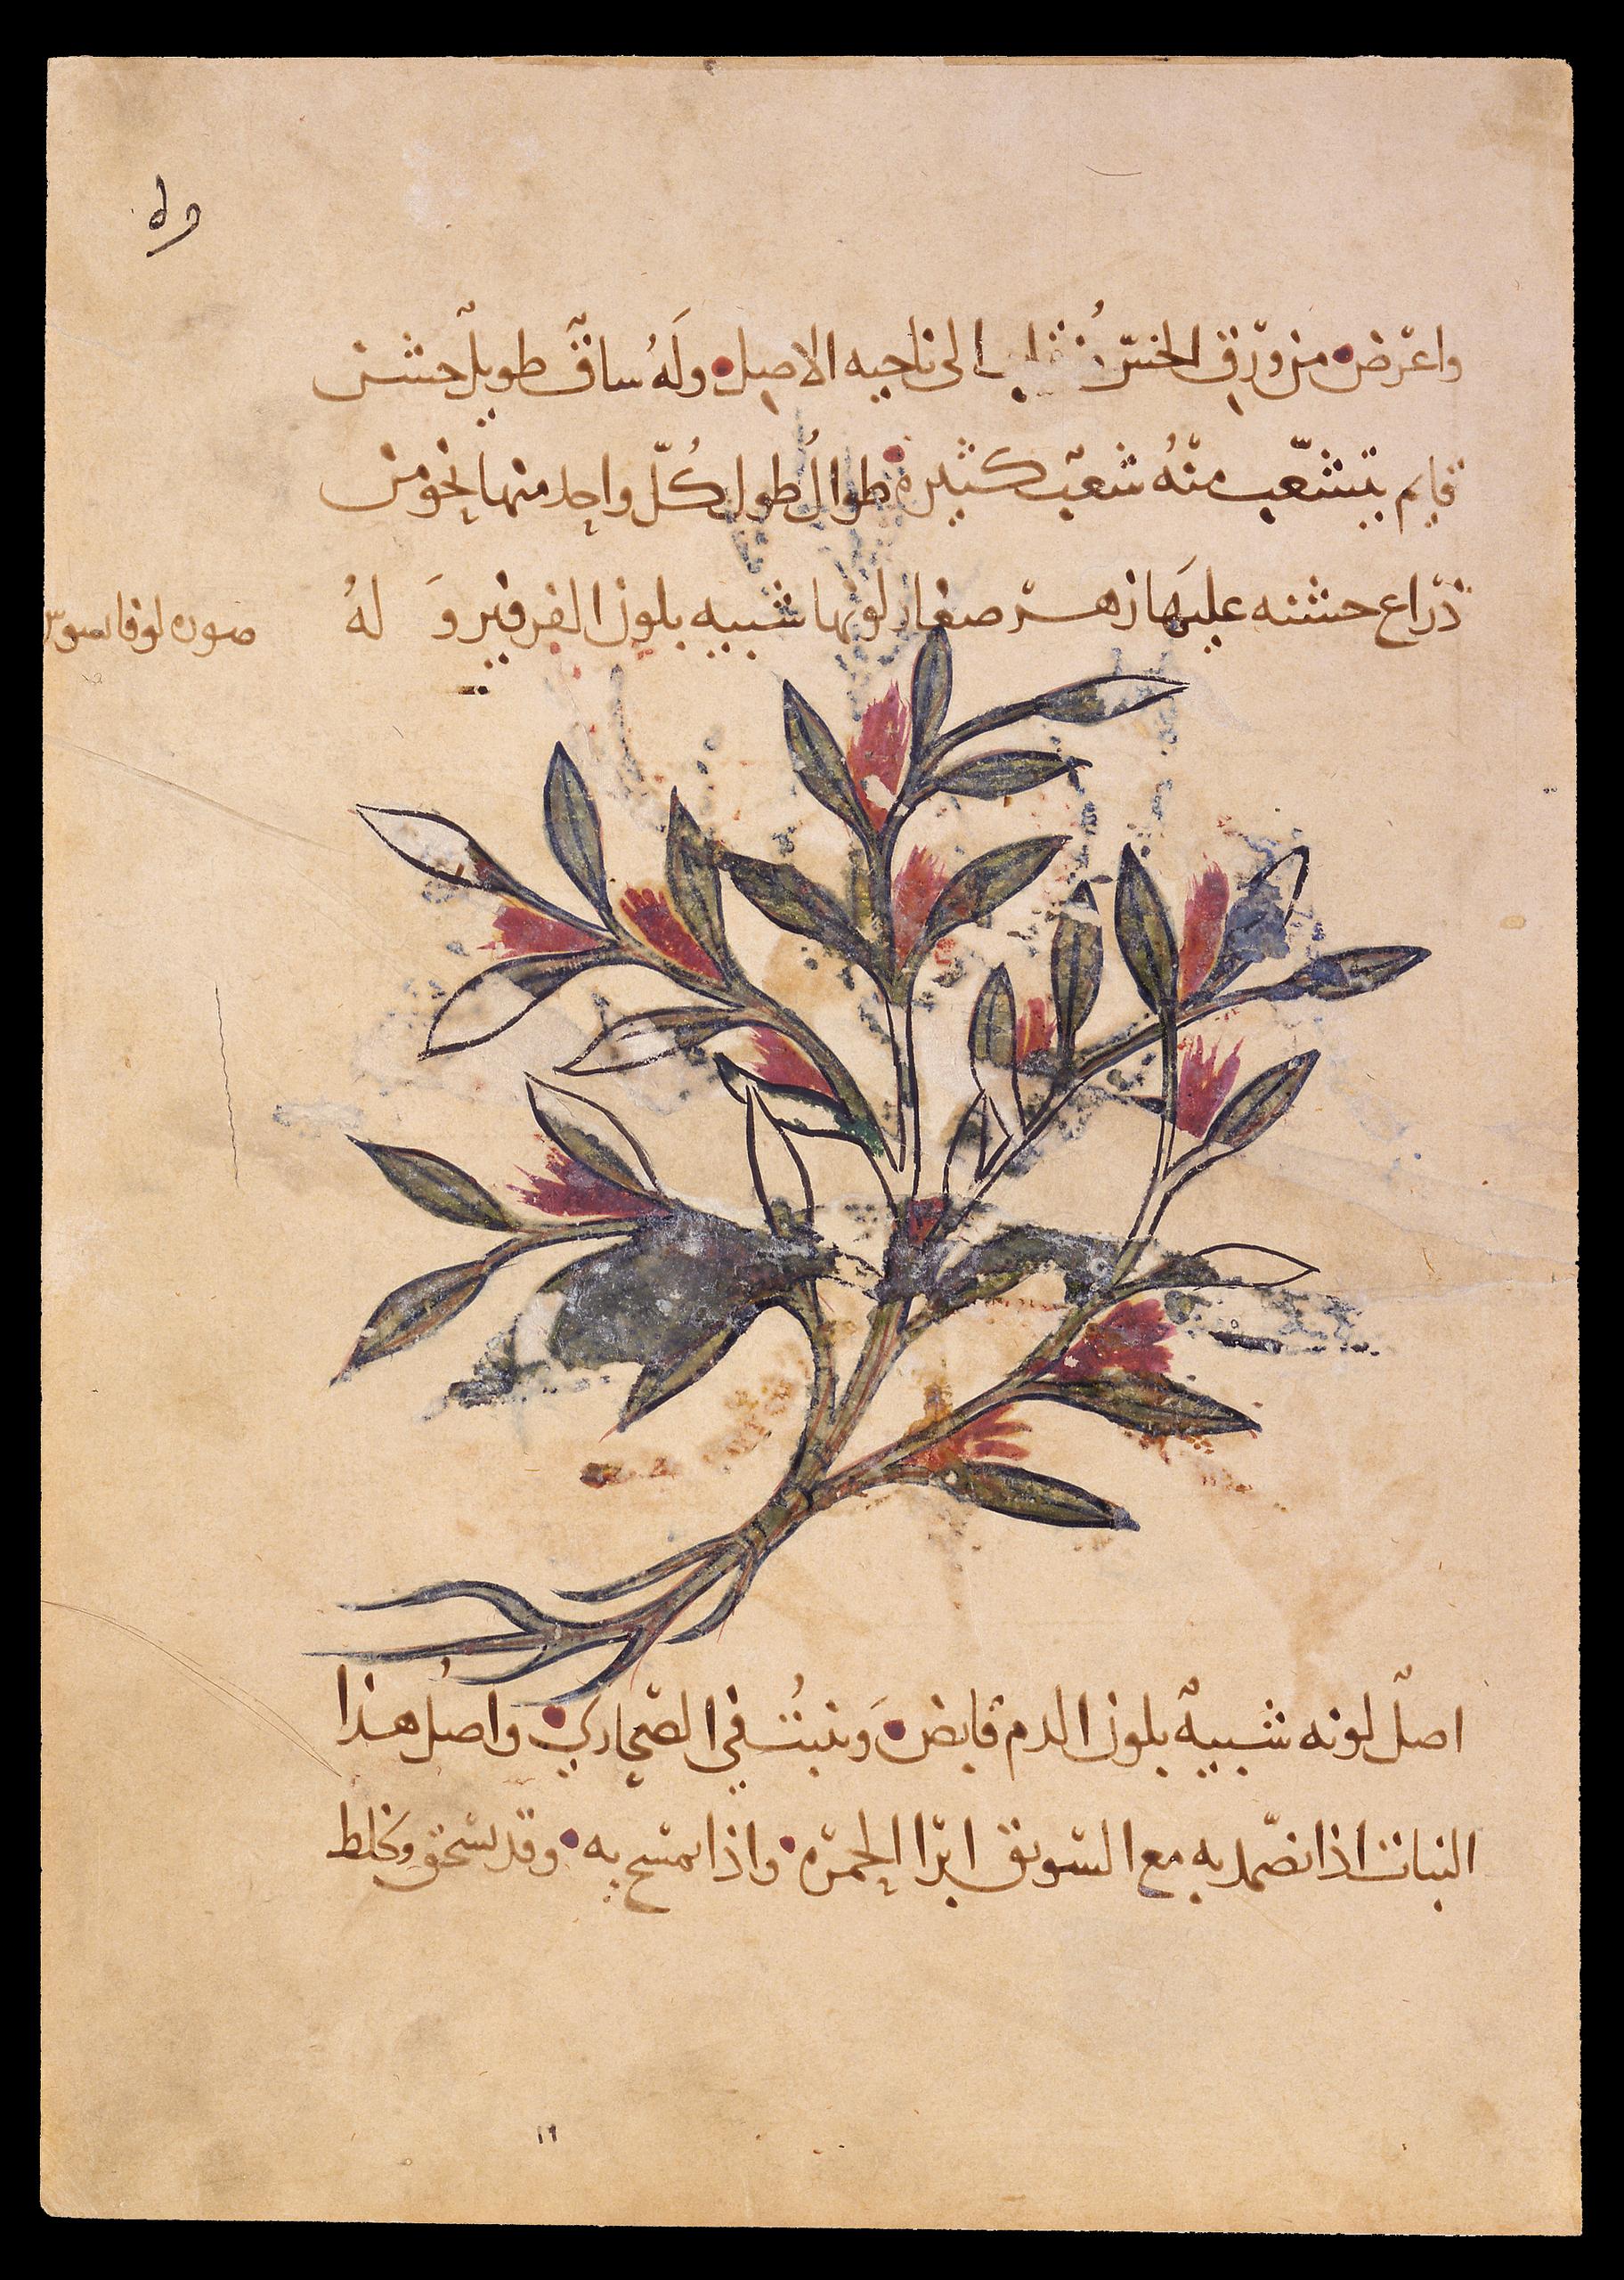 واعرض من ورق الخس الى ناحيه الاصل وله ساق طويل خشن
قايم يتشعب منه شعب كثيره طوال طول كل واحد منها نحو من
ذراع خشنه عليها زهر صغار لونها شبيه بلون الفرفير وَ لهُ
صوره لوفاسوس
اصل لونه شبيه بلون الدم قابض وينبت في الصحاري واصل هذا
النبات اذا تضمد به مع السويق ابرا الحمره واذا تمسح به وقد يسحق ويخلط
١٦